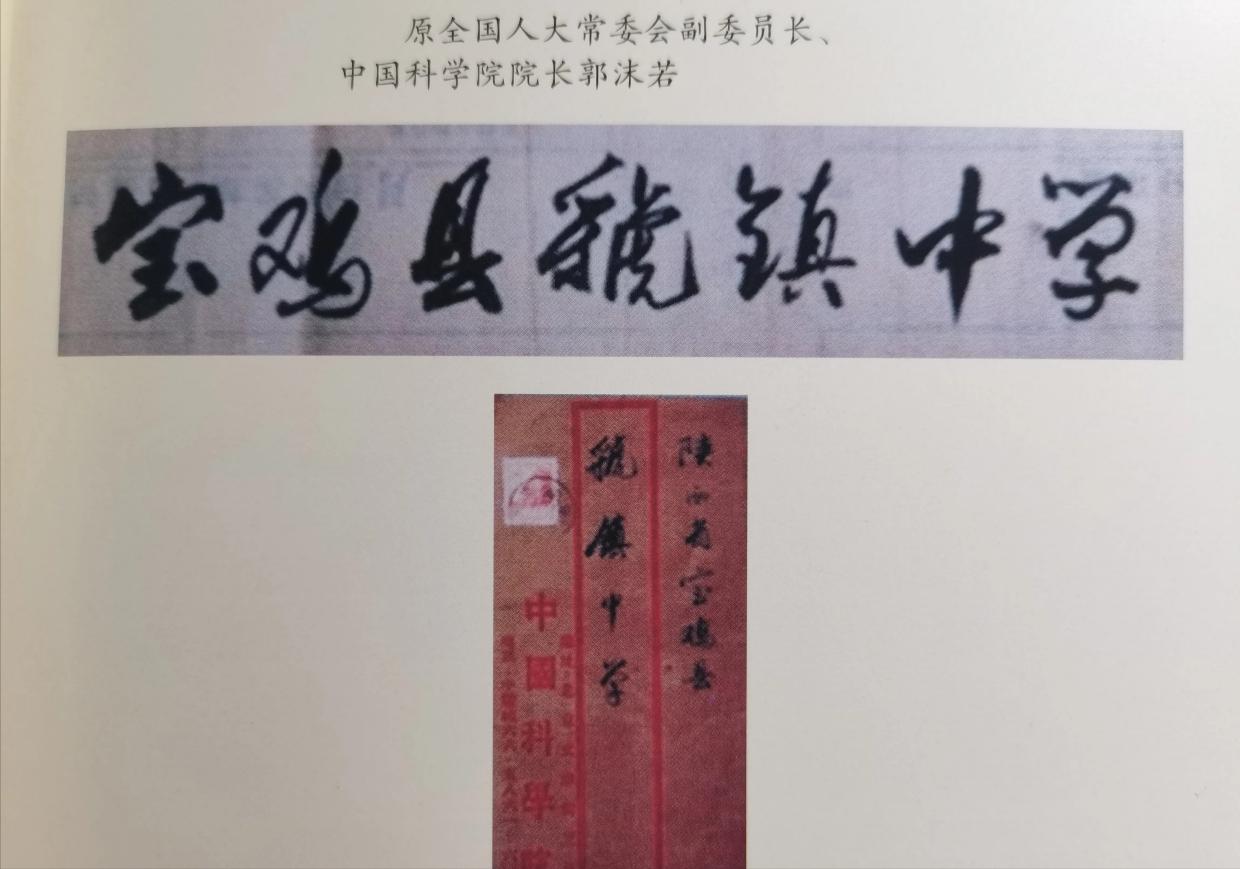 原全国人大常委会副委员长、
中国科学院院长郭沫若
宝鸡县虢镇中学
陕西省宝鸡县
虢镇中学
中國科學院